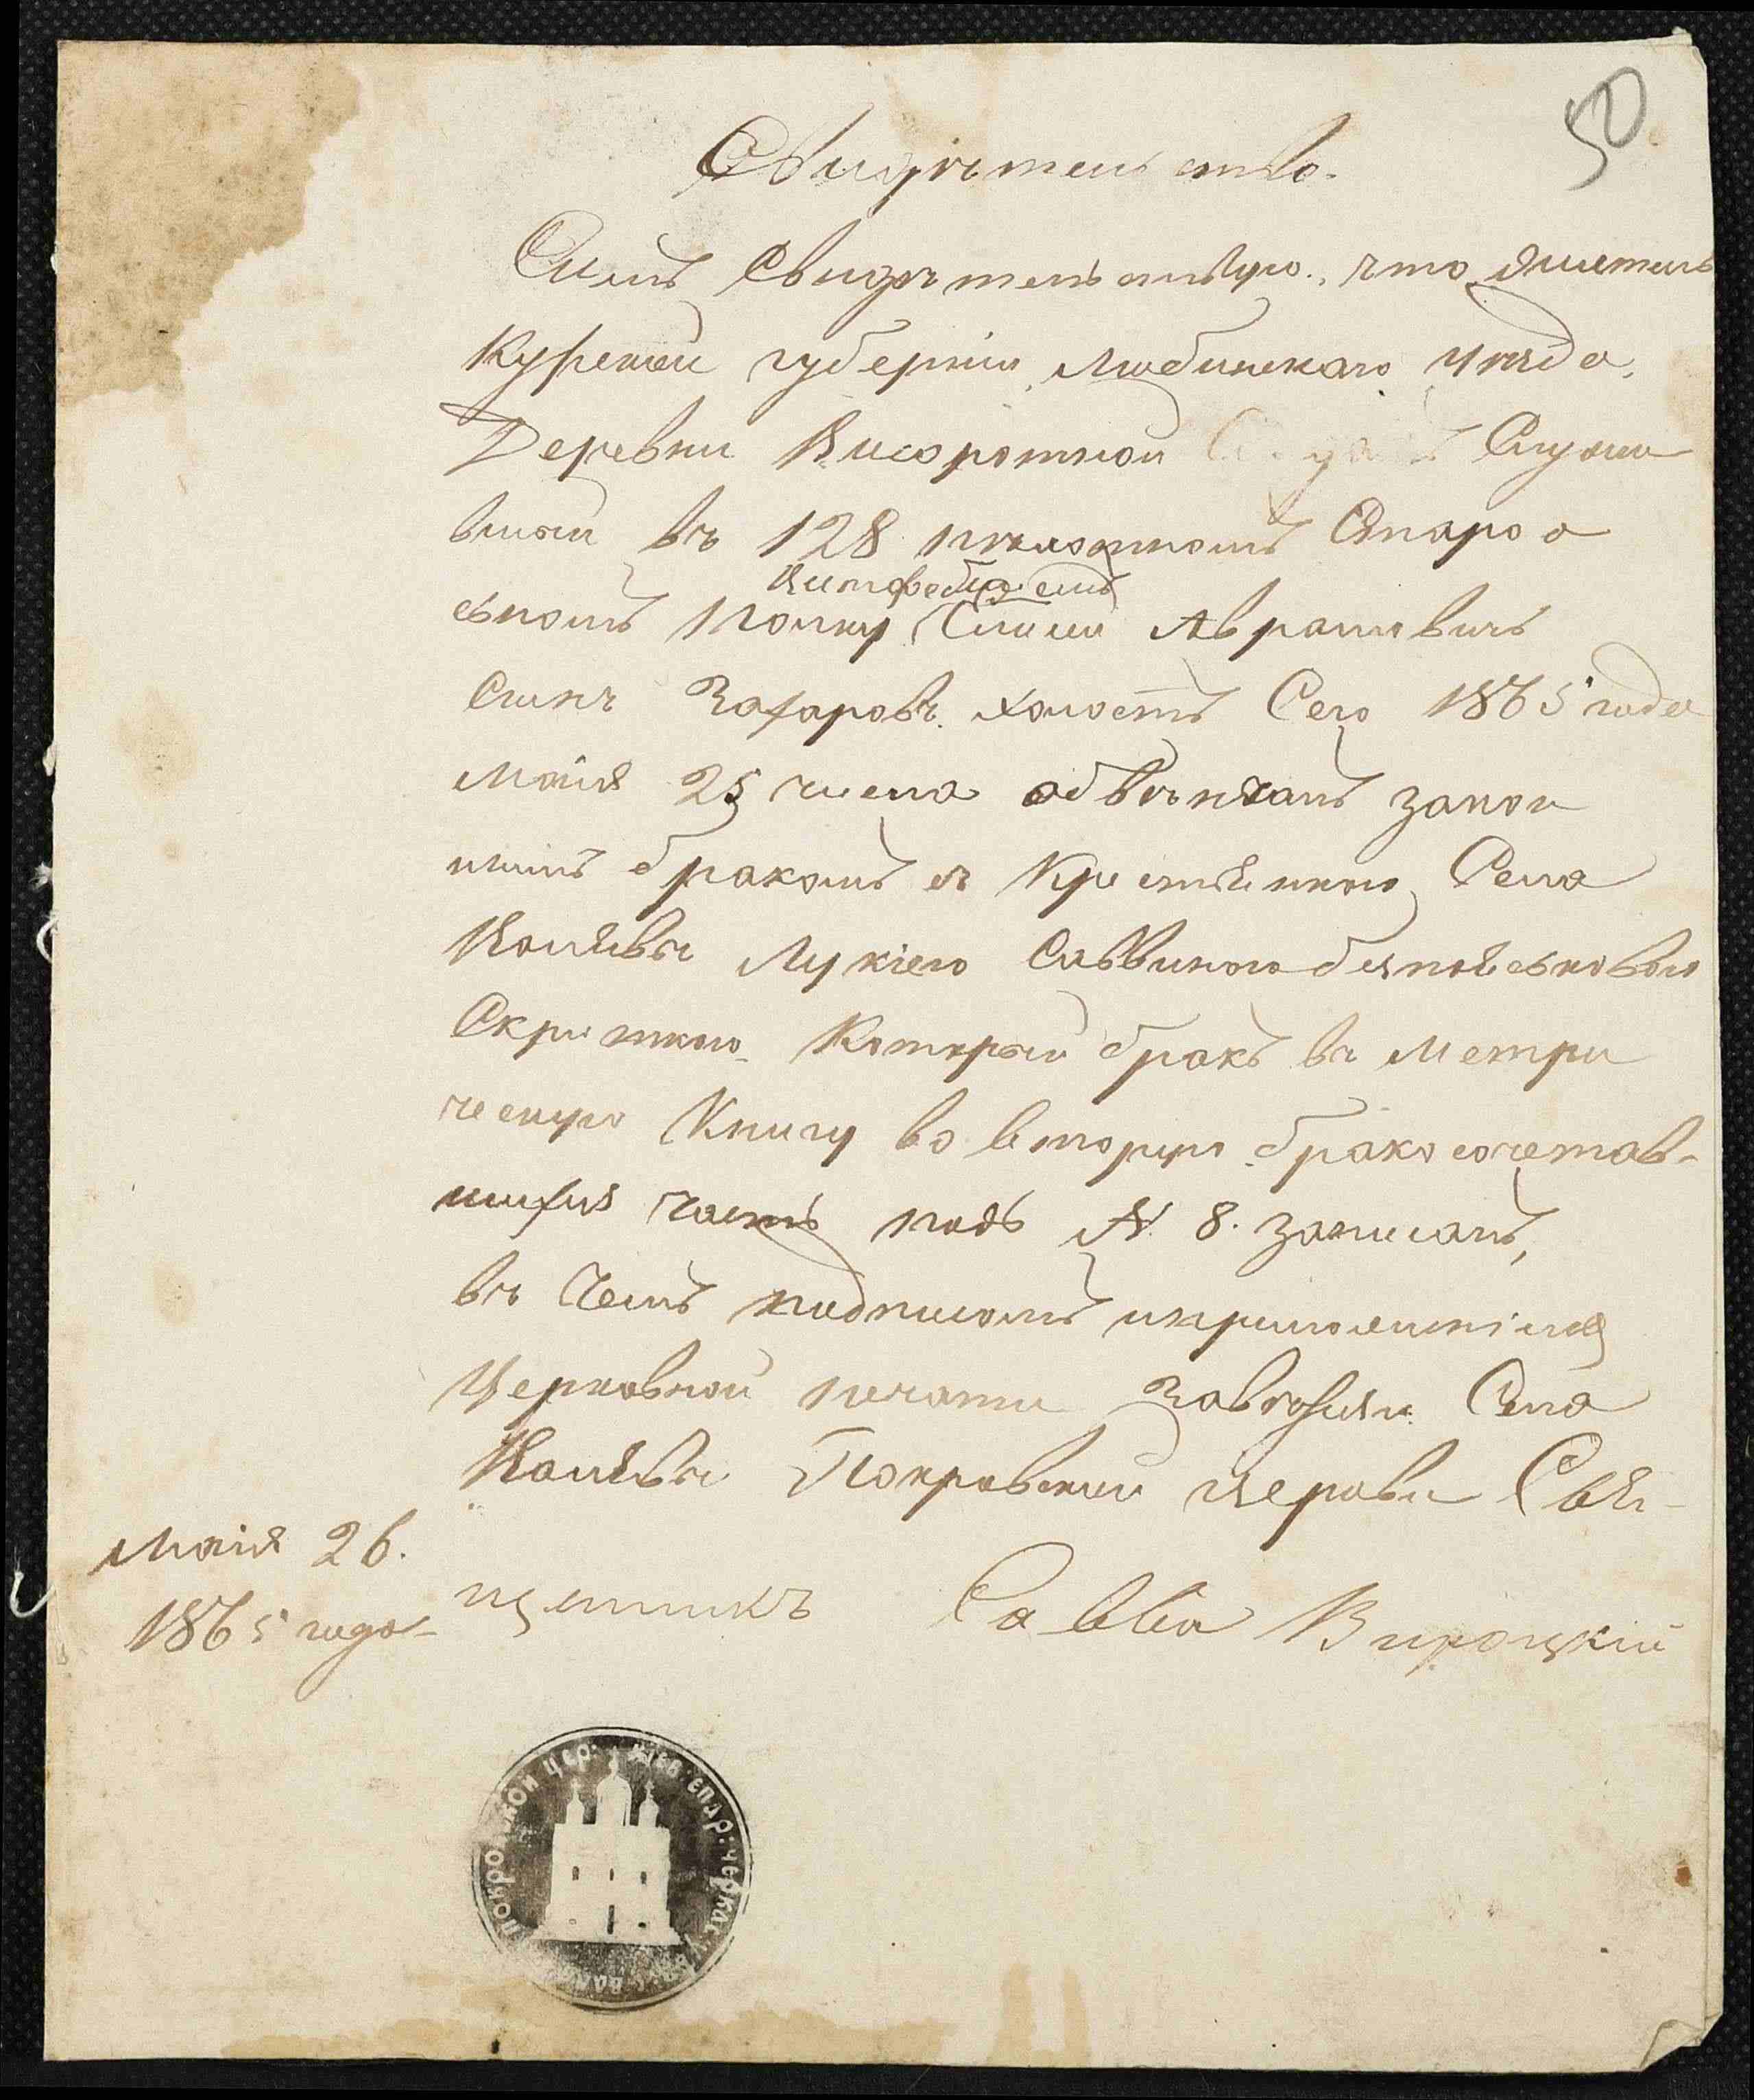 50
Свидѣтельство.
Симъ Свидѣтельствую, что житель
Курской губерніи Любинскаго уѣзда,
Деревни Служи
вшый въ 128 пѣхотномъ Старо о
скомъ Полку Аврамовичъ
сынъ Захаровъ холостъ Сего 1865 года
Маія 25 числа обвѣнчанъ закон
нымъ бракомъ съ Крестьянкою Села
Лукіею Саввиною
Скрипкою Который бракъ въ Метри
ческую Книгу во вторую бракосочетав-
шихся часть подъ N. 8. записанъ,
въ Чемъ подписомъ и приложеніемъ
Церковной печати Села
Покровской церкви Свя-
щенникъ Савва Вироцкій
Маія 26.
1865 года
покровской цер: кіев: епар: черкас: